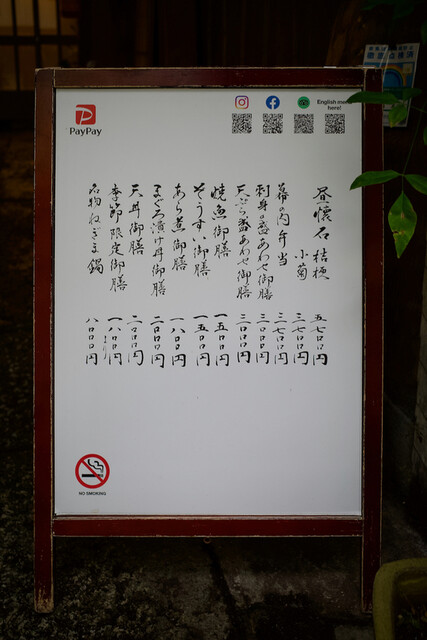 PayPay
English menu here!
昼懐石 桔梗 五七〇〇円
小菊 三七〇〇円
幕の内弁当 二七〇〇円
刺身の盛あわせ御膳 三〇〇〇円
天ぷら盛あわせ御膳 三〇〇〇円
焼魚御膳 一五〇〇円
ぞうすい御膳 一五〇〇円
あら煮御膳 一八〇〇円
まぐろ漬け丼御膳 二〇〇〇円
天丼御膳 二〇〇〇円
季節限定御膳 一八〇〇円より
名物ねぎま鍋 八〇〇〇円
NO SMOKING